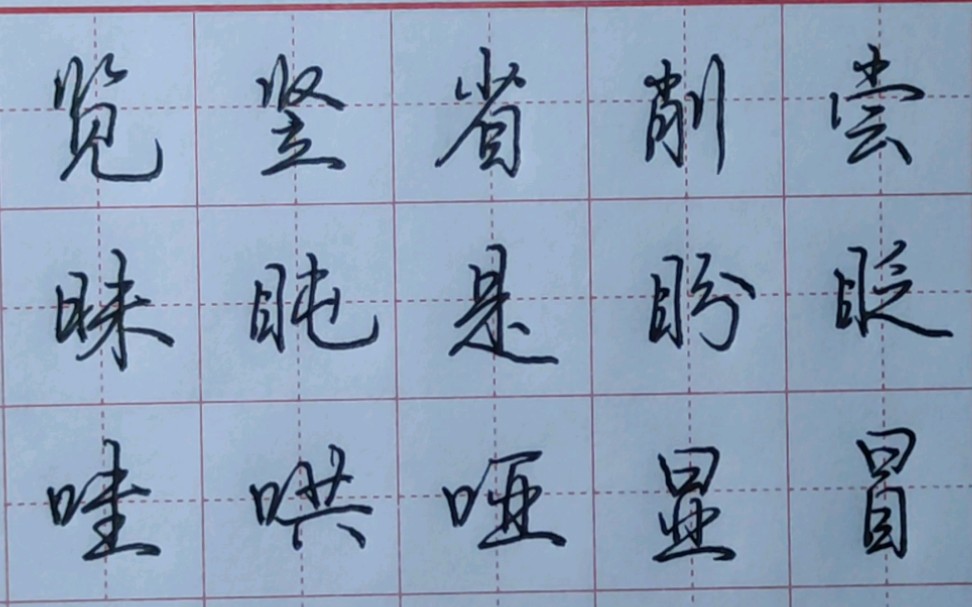 览竖省削尝
昧盹是盼眨
哇哄哑显冒